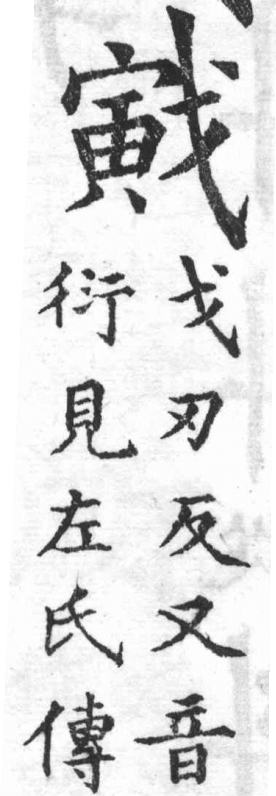 戭
戈刃反又音
衍見左氏傳